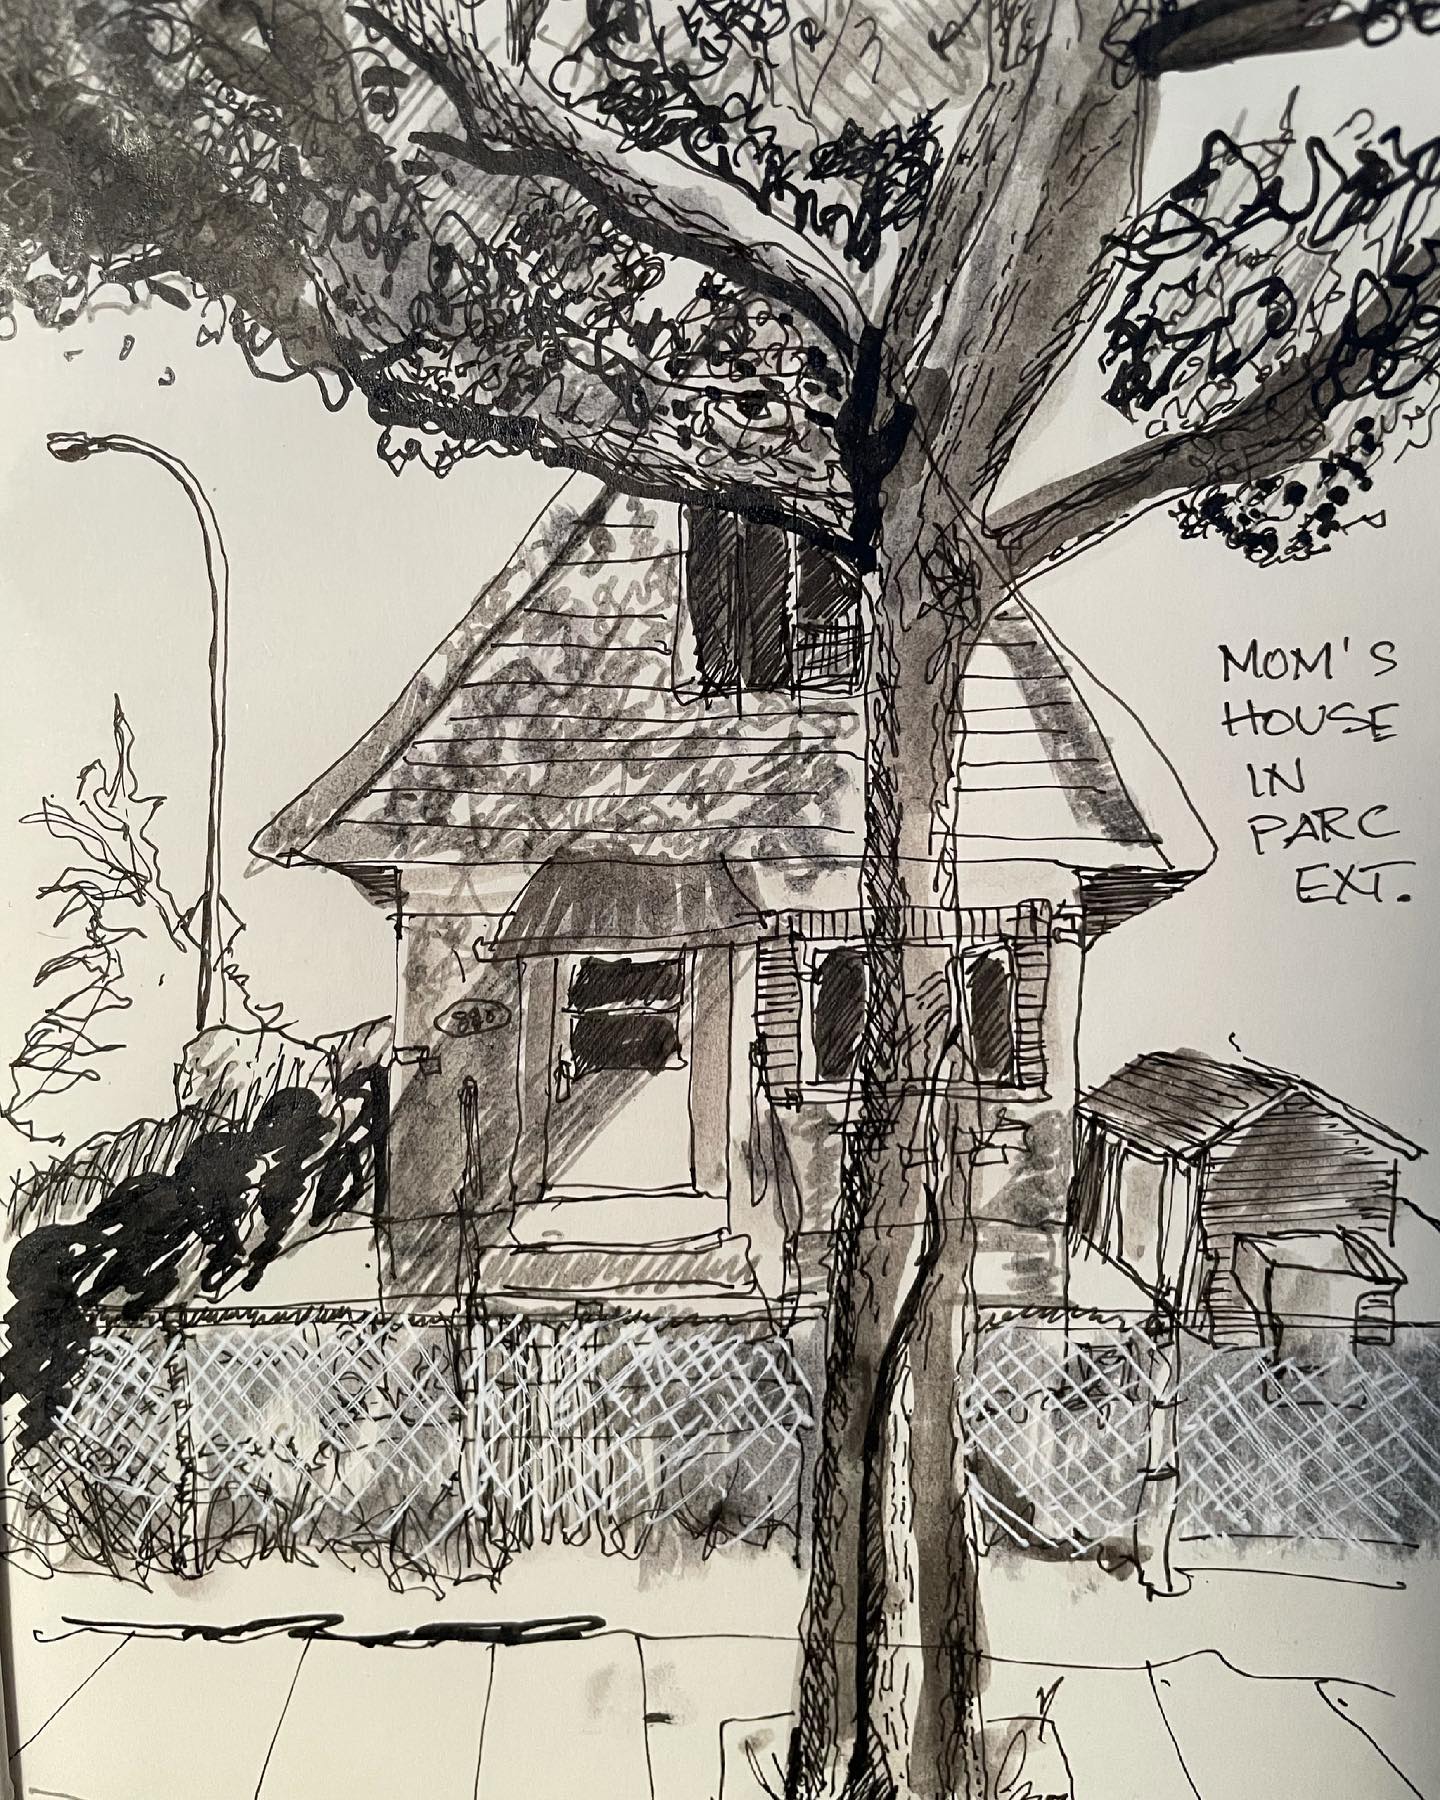 MOM'S
HOUSE
IN
PARC
EXT.